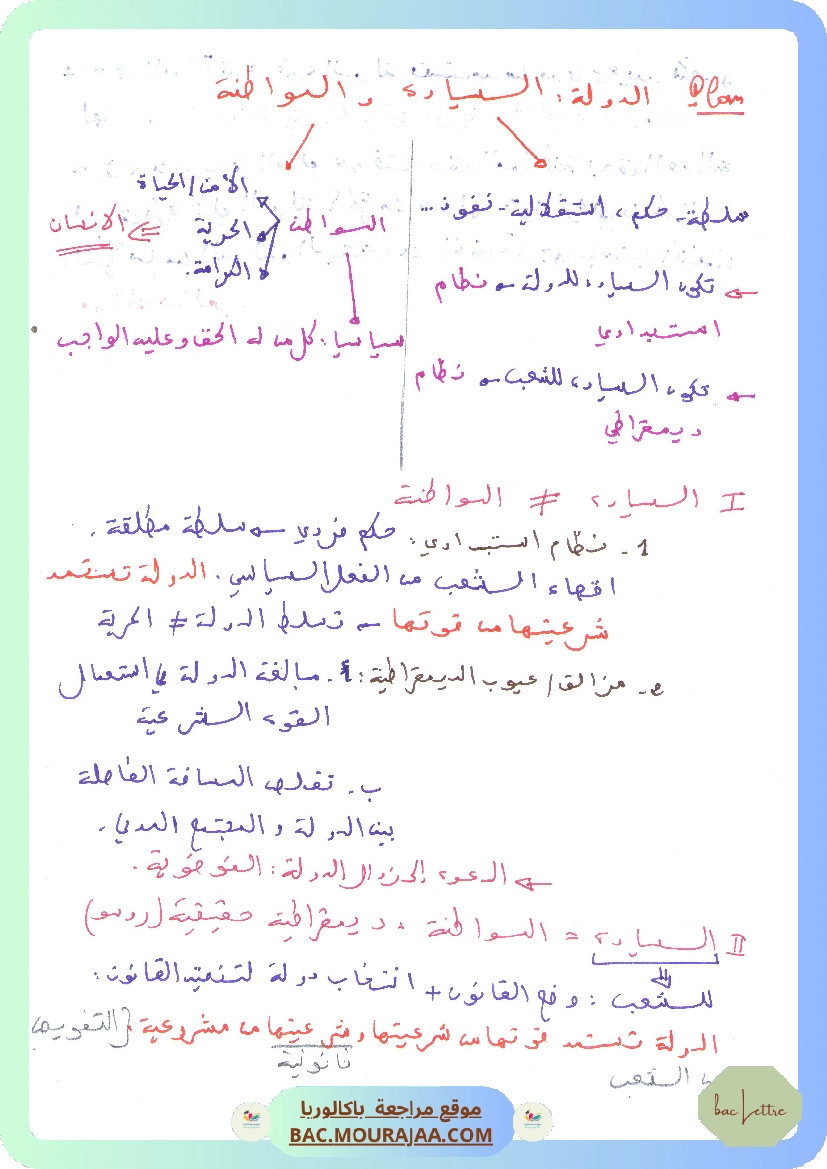 Plan الدولة : السيادة والمواطنة
سلطة - حكم، استقلالية - نفوذ...
← تكون السيادة للدولة ← نظام
استبدادي
← تكون السيادة للشعب ← نظام
ديمقراطي
الأمن / الحياة
المواطنة الحرية ⇐ الإنسان
الكرامة
سياسيا : كل من له الحق وعليه الواجب
I السيادة ≠ المواطنة
1- نظام استبدادي : حكم فردي ← سلطة مطلقة.
اقصاء الشعب من الفعل السياسي. الدولة تستمد
شرعيتها من قوتها ← تسلط الدولة ≠ الحرية
2- مزالق / عيوب الديمقراطية : أ- مبالغة الدولة في استعمال
القوة الشرعية
ب- تقلص المسافة الفاصلة
بين الدولة و المجتمع المدني.
← الدعوة إلى زوال الدولة : الفوضوية.
II السيادة = المواطنة : ديمقراطية حقيقية (روسو)
للشعب : وضع القانون + انتخاب دولة لتنفيذ القانون :
الدولة تستمد قوتها من شرعيتها و شرعيتها من مشروعية (التفويض
قانونية
من الشعب
bac Lettre
موقع مراجعة باكالوريا
BAC.MOURAJAA.COM